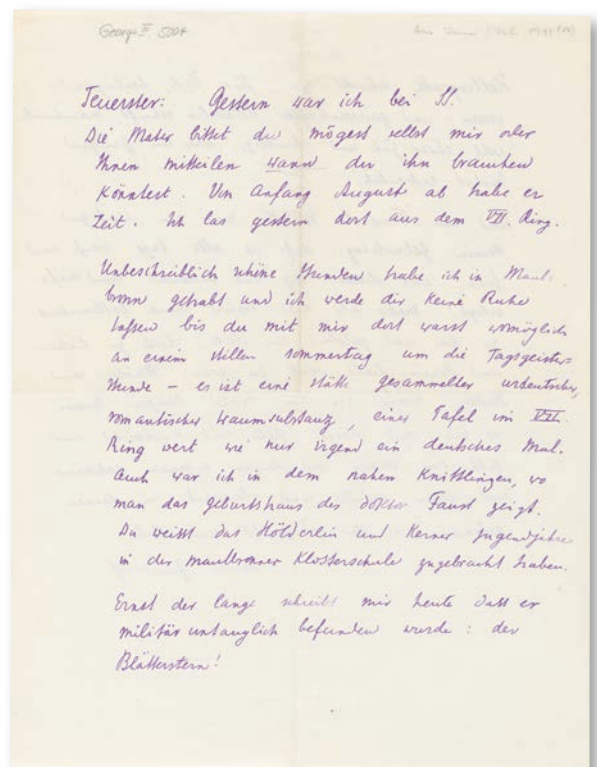 George III, 5004
Teuerster: Gestern war ich bei
Die Mater bittet du mögest selbst mir oder
Ihnen mitteilen wann du ihn brauchen
könntest. Von Anfang August ab habe er
Zeit. Ich las gestern dort aus dem VII. Ring.
Unbeschreiblich schöne Stunden habe ich in Maul-
bronn gehabt und ich werde dir keine Ruhe
lassen bis du mit mir dort warst womöglich
an einem stillen sommertag um die Tagsgeister-
stunde – es ist eine stätte gesammelter urdeutscher,
romantischer traumsubstanz, einer Tafel im VII.
Ring wert wie nur irgend ein deutsches Mal.
Auch war ich in dem nahen Knittlingen, wo
man das geburtshaus des doktor Faust zeigt.
Du weisst das Hölderlin und Kerner jugendjahre
in der maulbronner Klosterschule zugebracht haben.
Ernst der lange schreibt mir heute dass er
militäruntauglich befunden wurde: der
Blätterstern!